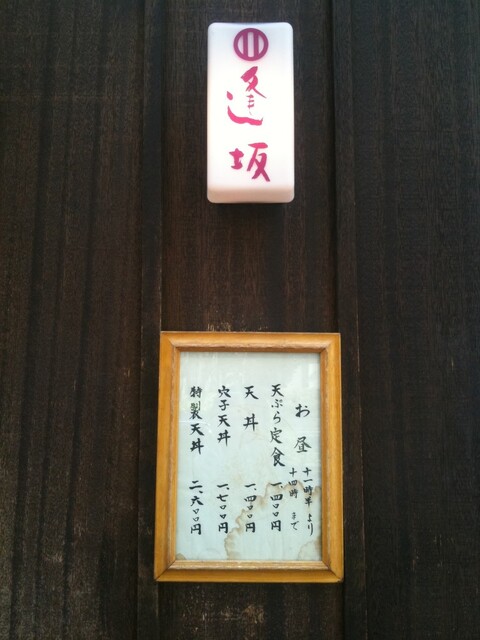 逢坂
お昼 十一時半より
十四時まで
天ぷら定食 一、四〇〇円
天丼 一、四〇〇円
穴子天丼 一、七〇〇円
特製天丼 二、六〇〇円